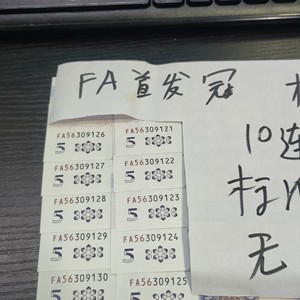 FA首发冠
10连
标
无
FA56309126
5
FA56309121
5
FA56309127
5
FA56309122
5
FA56309128
5
FA56309123
5
FA56309129
5
FA56309124
5
FA56309130
FA56309125
5